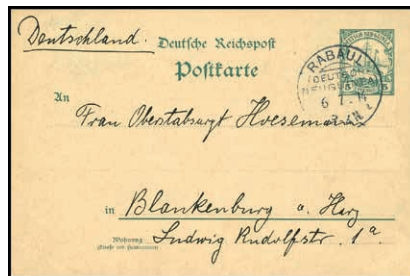 Deutschland.
Deutsche Reichspost
Postkarte
RABAUL
DEUTSCH-
NEUGUINEA
An
Frau Oberstabsarzt Hoesemann
in Blankenburg a. Harz
Wohnung
Ludwig Rudolfstr. 1a